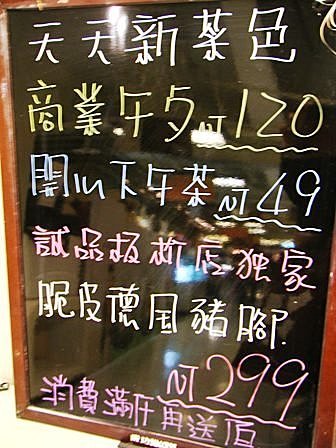 天天新菜色
商業午夕NT120
開心下午茶NT49
誠品板橋店独家
脆皮德国豬腳
NT299
消費滿仟再送佰